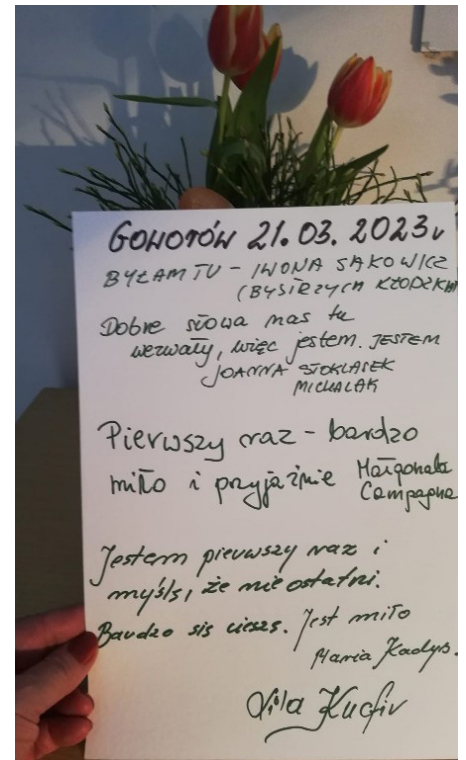 GOWORÓW 21.03.2023r
BYŁAM TU - IWONA SAKOWICZ
(BYSTRZYCA KŁODZKA)
Dobre słowa nas tu
wezwały, więc jestem. JESTEM
JOANNA STOKLASEK
MICHALAK
Pierwszy raz - bardzo
miło i przyjaźnie Małgorzata
Campagna
Jestem pierwszy raz i
myślę, że nie ostatni.
Bardzo się cieszę. Jest miło
Maria Kadys.
Lila